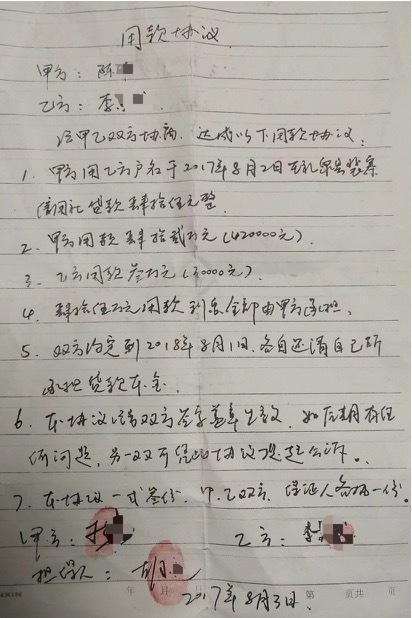 用款协议
甲方：陈
乙方：李
经甲乙双方协商，达成以下用款协议：
1、甲方用乙方户名于2017年8月2日在
信用社贷款肆拾伍万整
2、甲方用款肆拾贰万元（420000元）.
3、乙方用款叁万元（30000元）
4、肆拾伍万元用款利息全部由甲方承担.
5、双方约定到2018年8月1日各自还清自己所
承担贷款本金.
6、本协议经双方签字盖章生效，如后期有任
何问题，另一双可凭此协议提起公诉。
7、本协议一式叁份，甲、乙双方、保证人各执一份。
甲方：
乙方：李
担保人：
年 月
第 页共 页
2017年8月3日.